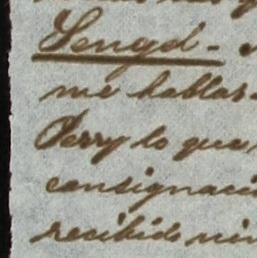 Sengel -
me hablas
Perry lo que
consignaci
recibido nin